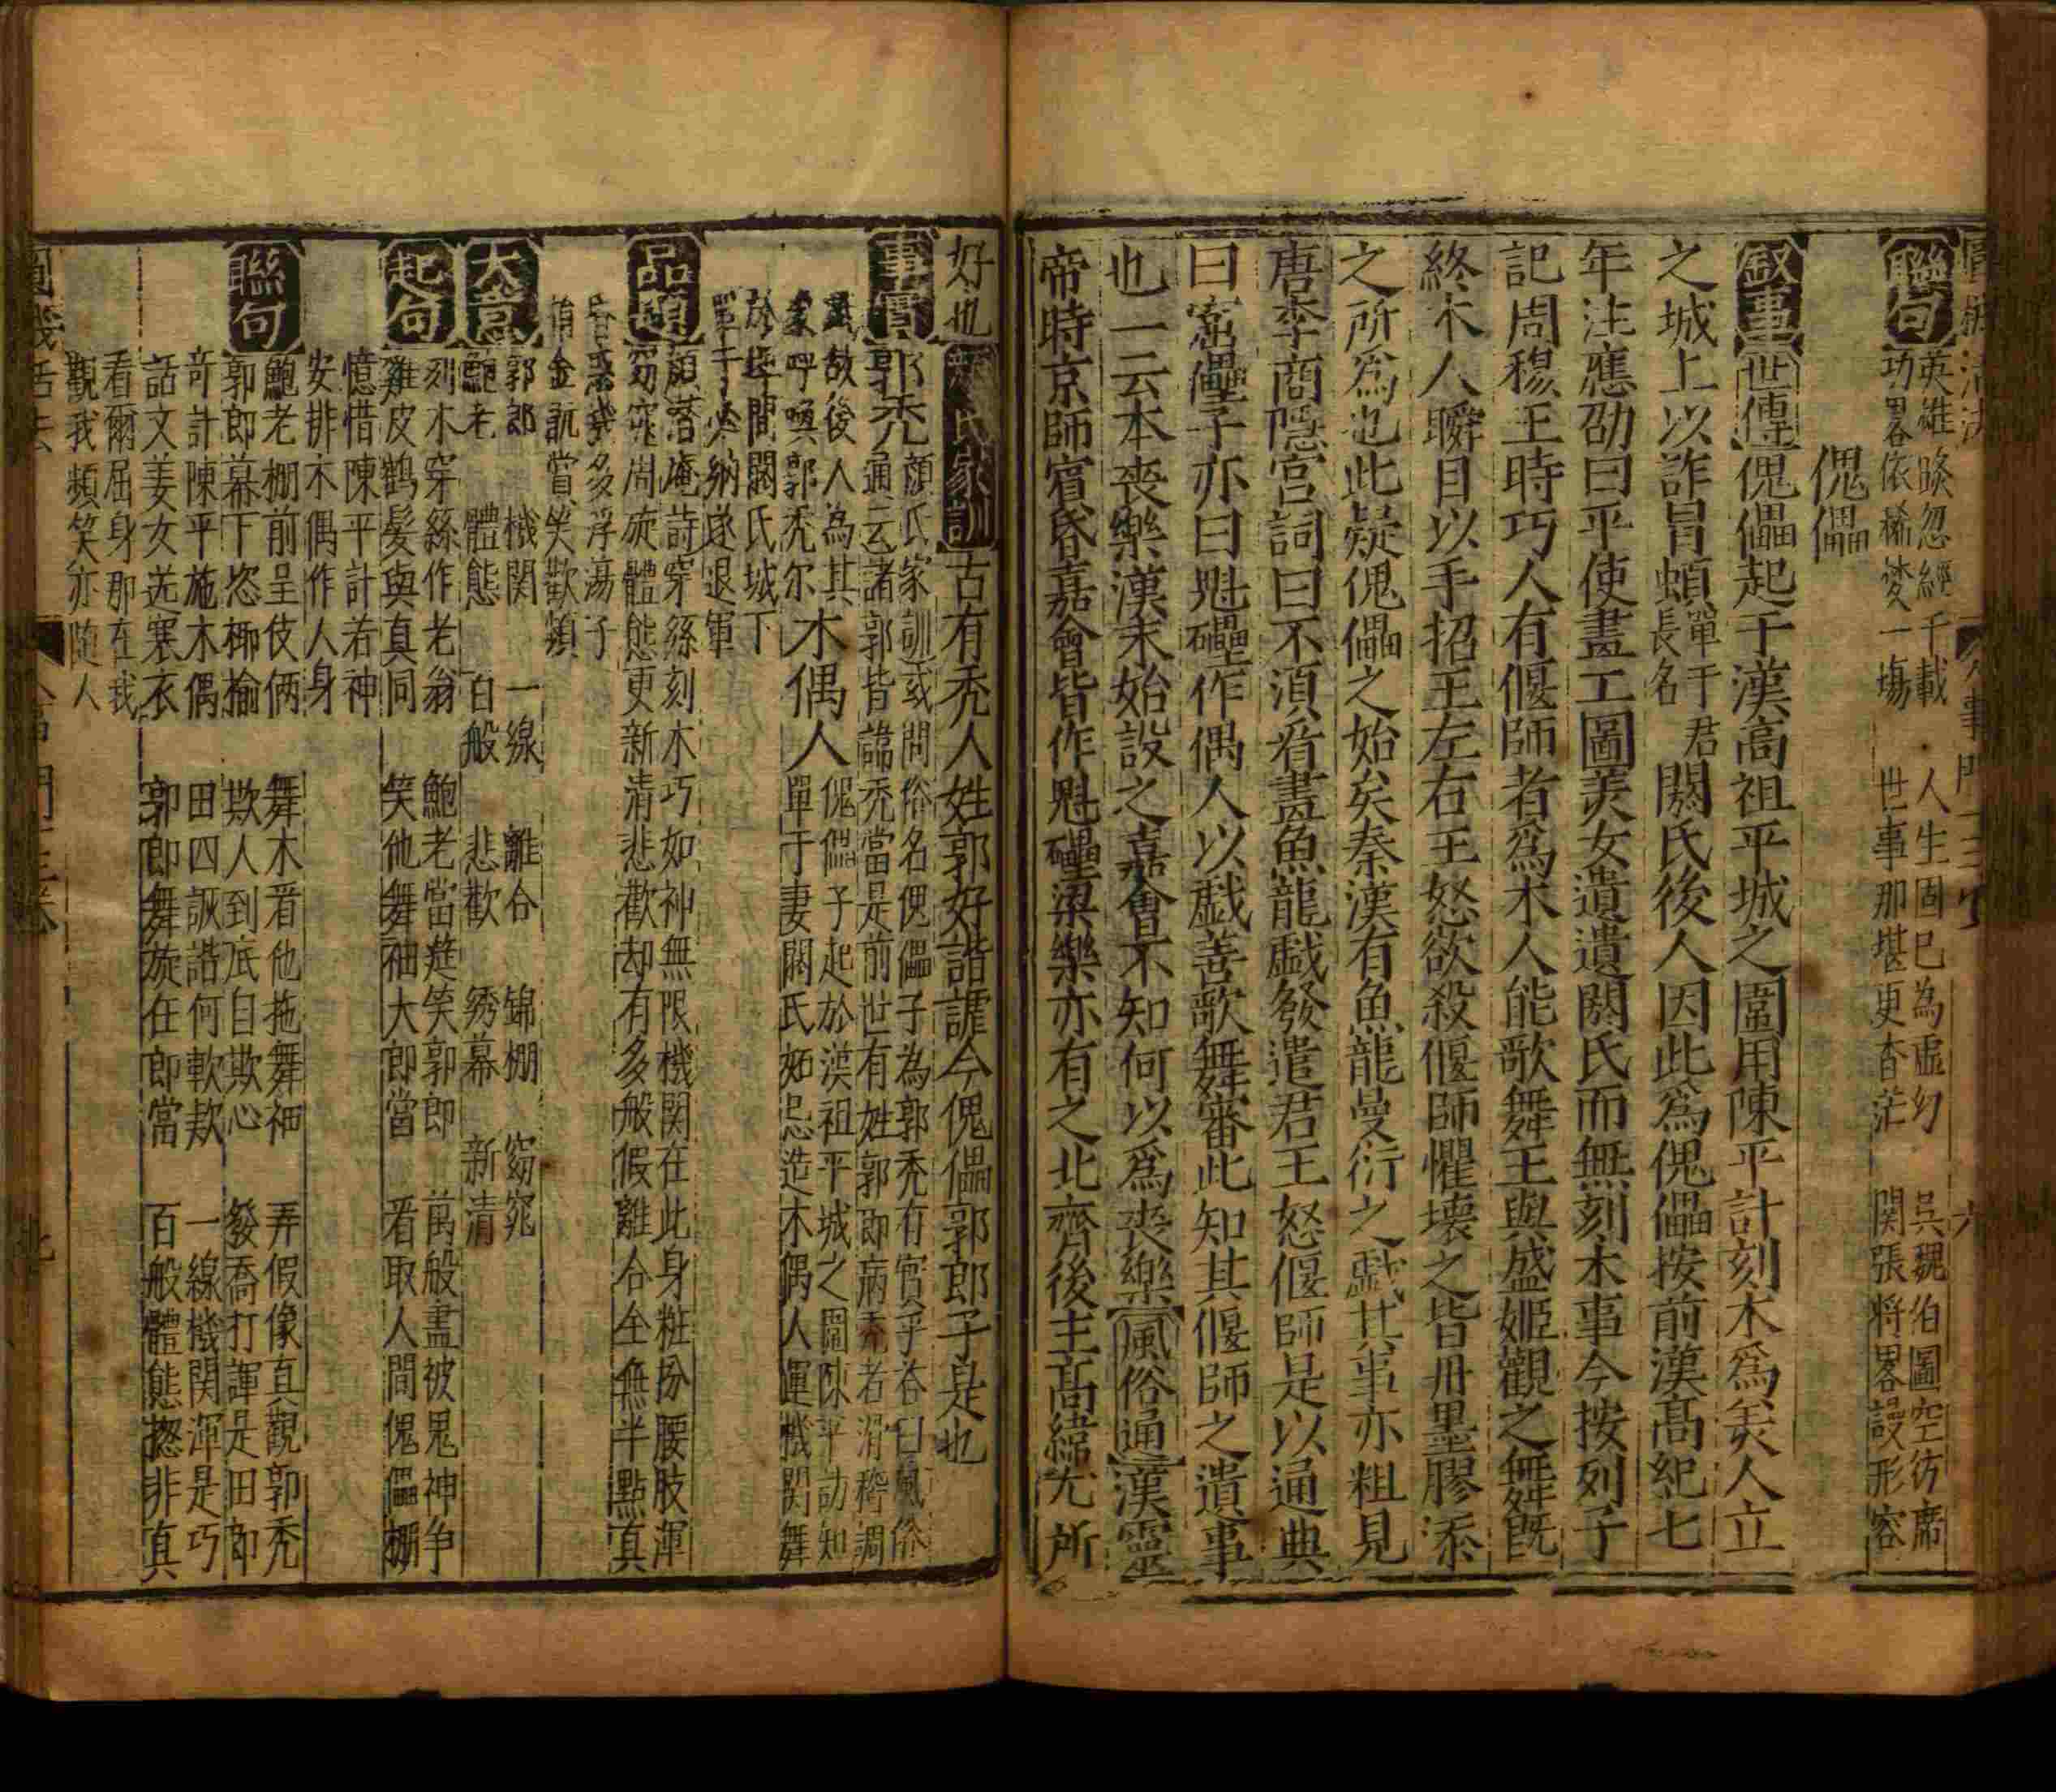 聯句
英雄晱忽經千載 人生固已為虛幻 吳魏伯圖空彷席
功畧依稀㱘一塲 世事那堪更杳茫 関張將畧謾形容
傀儡
敘事 世傳傀儡起于漢高祖平城之圍用陳平計刻木為美人立
之城上以詐冐蝢單于君長名閼氏後人因此為傀儡按前漢髙紀七
年注應劭曰平使畫工圖美女遺遺閼氏而無刻木事今按列子
記周穆王時巧人有偃師者為木人能歌舞王與盛姬觀之舞旣
終木人瞬目以手招王左右王怒欲殺偃師懼壊之皆丹墨膠漆
之所為也此疑傀儡之始矣秦漢有魚龍曼衍之戲其事亦粗見
唐李商隱宫詞曰不須看盡魚龍戲發遣君王怒偃師是以通典
曰窟儡子亦曰魁礧作偶人以戱善歌舞審此知其偃師之遺事
也一云本喪樂漢末始設之嘉會不知何以為喪樂風俗通漢靈
帝時京師賔昏嘉會皆作魁礧梁樂亦有之北齊後主髙緯尤所
好也顔氏家訓古有秃人姓郭好諧謔今傀儡郭郎子是也
事實 郭秃 顔氏家訓或問俗名傀儡子為郭秃有實乎荅曰風俗
通云諸郭皆諱秃當是前世有姓郭即病秃者滑稽調
戲故後人為其 木偶人 傀儡子起於漢祖平城之圍陳平訪知
象呼喚郭秃尔 單于妻閼氏妬忌造木偶人運機関舞
於埤間閼氏城下
單于必納遂退軍
品題 顔蓉庵詩穿絲刻木巧如神無限機関在此身粧扮腰肢渾
窈窕周旋體態更新清悲歡却有多般假離合全無半點真
昏惑幾多浮蕩子
捐金訊賞笑歡頻
大意 郭郎 機関 一線 離合 錦棚 窈窕
鮑老 體態 百般 悲歡 綉幕 新清
起句 刻木穿絲作老翁 鮑老當筵笑郭郎 萬般盡被鬼神争
雞皮鶴髪與真同 笑他舞袖大郎當 看取人間傀儡棚
憶惜陳平計若神
安排木偶作人身
聯句 鮑老棚前呈伎俩 舞木看他拖舞袖 弄假像真觀郭秃
郭郎幕下恣揶揄 欺人到底自欺心 發喬打諢是田郎
竒計陳平施木偶 田四詼諧何軟欵 一線機関渾是巧
話文姜女送寒衣 郭郎舞旋任郎當 百般體態揔非真
看爾屈身那在我
觀我頻笑亦随人